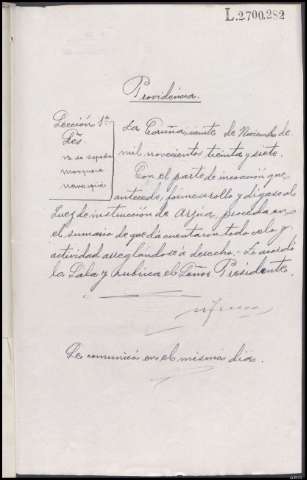 L.2.700.282
Providencia.
Sección 1ª
Sres
La Coruña veinte de Noviembre de
mil novecientos treinta y siete.
Con el parte de incoación que
antecede, fórmese rollo y dígase al
Juez de instrucción de Arzua, proceda en
el sumario de que dá cuenta con todo celo y
actividad arreglándose a derecho.- Lo acordó
la Sala y rubrica el Señor Presidente.
Se comunicó en el mismo dia.